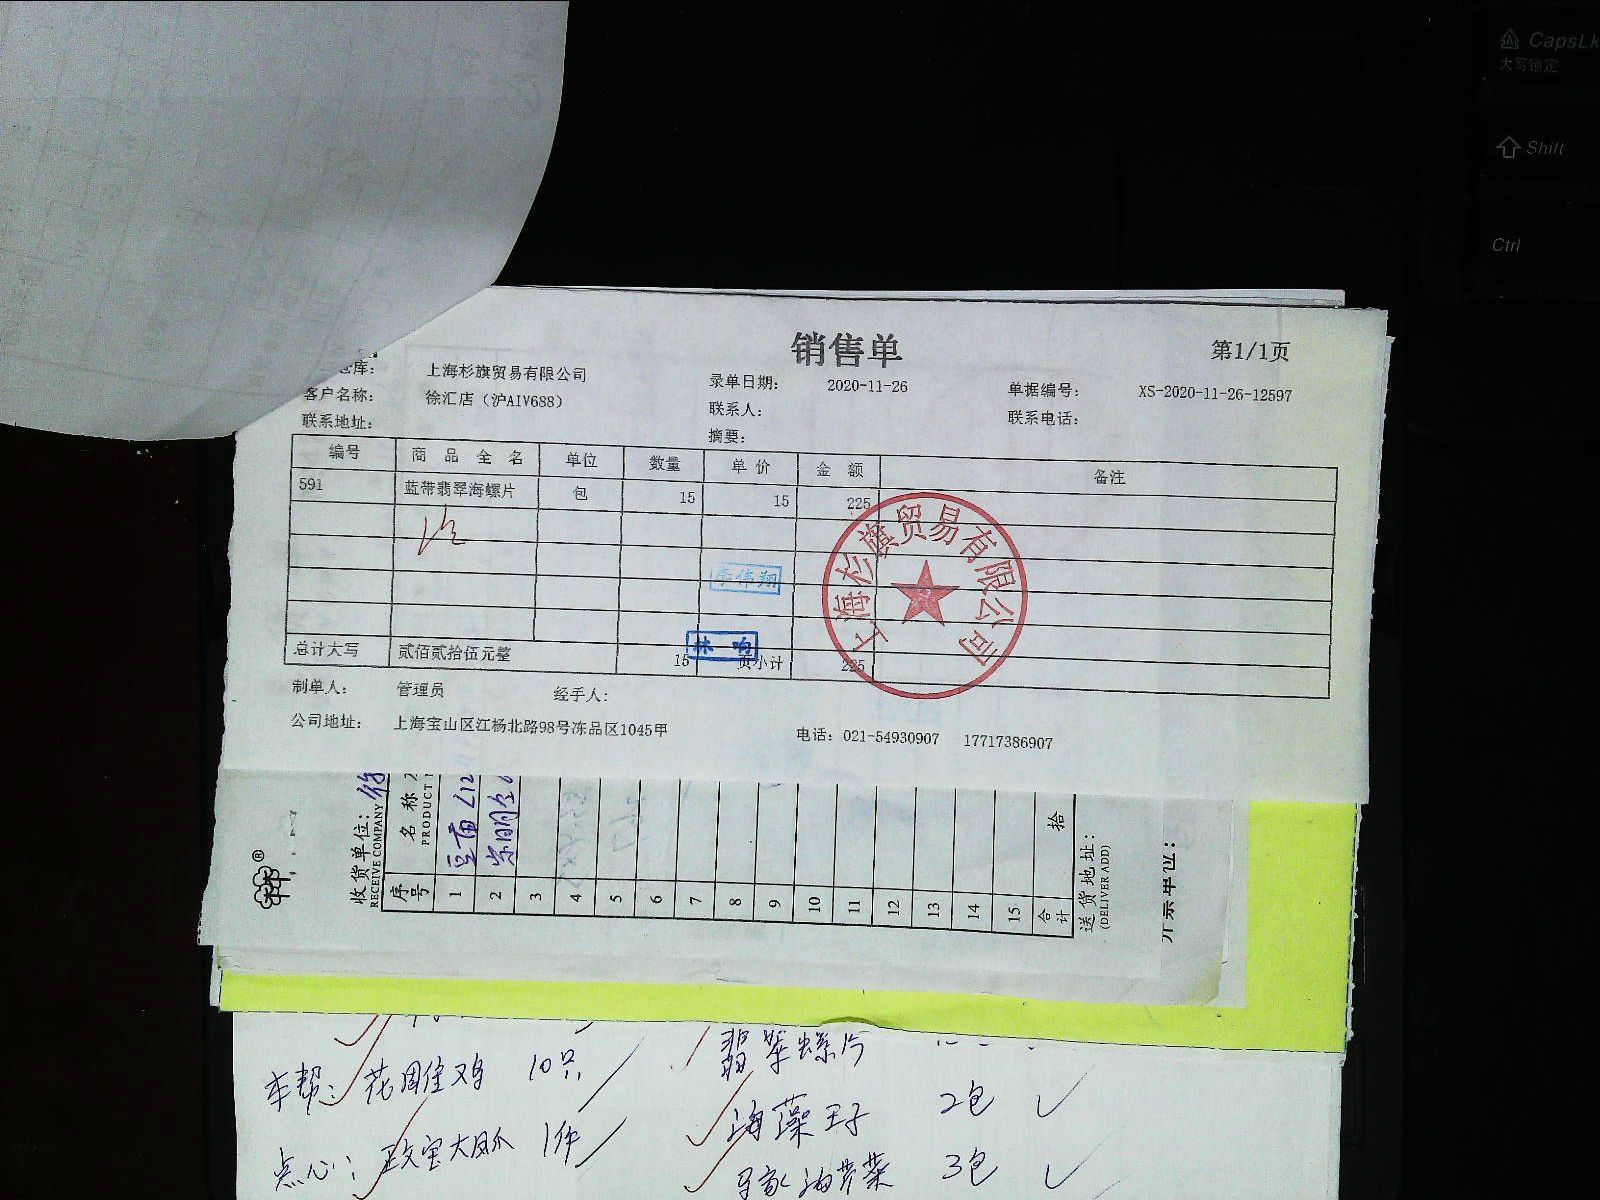 CapsLk
大写锁定
Shift
Ctrl
销售单
第1/1页
仓库： 上海杉旗贸易有限公司 录单日期： 2020-11-26 单据编号： XS-2020-11-26-12597
客户名称： 徐汇店（沪AIV688） 联系人： 联系电话：
联系地址： 摘要：
编号 商品全名 单位 数量 单价 金额 备注
591 蓝带翡翠海螺片 包 15 15 225
李伟翔
上海杉旗贸易有限公司
林 响
总计大写 贰佰贰拾伍元整 15 页小计 225
制单人： 管理员 经手人：
公司地址： 上海宝山区江杨北路98号冻品区1045甲 电话：021-54930907 17717386907
收货单位：
RECEIVE COMPANY
序号 名称
PRODUCT
1
2
3
4
5
6
7
8
9
10
11
12
13
14
15
合计 拾
送货地址：
(DELIVER ADD)
翡翠螺片
花雕鸡 10只
海藻王子 2包
点心： 大凤爪 1件
3包